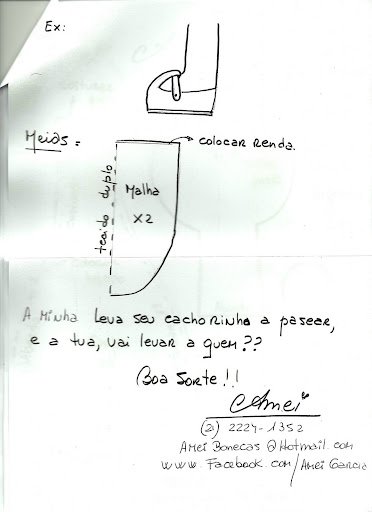 Ex:
Meias =
colocar renda.
tecido duplo
Malha
X2
A Minha leva seu cachorinho a passear,
e a tua, vai levar a quem??
Boa Sorte!!
Amei
(21) 2224-1352
Amei Bonecas @Hotmail.com
www.Facebook.com/Amei Garcia